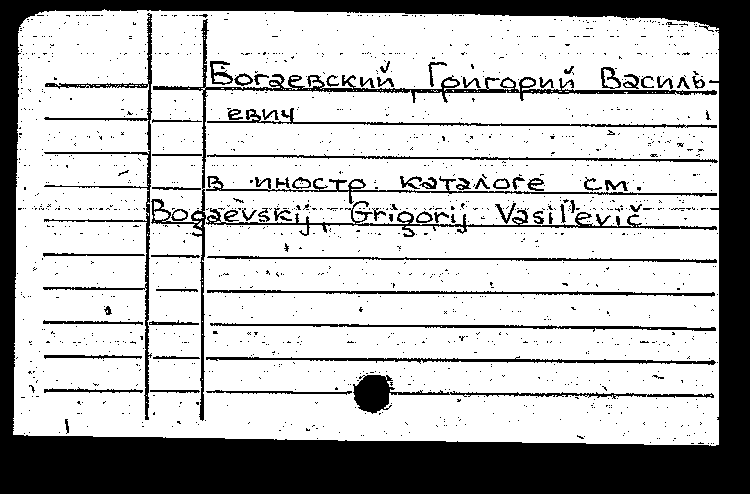 Богаевский, Григорий Василь-
евич
в иностр. каталоге см.
Bogaevskij, Grigorij Vasil'evič